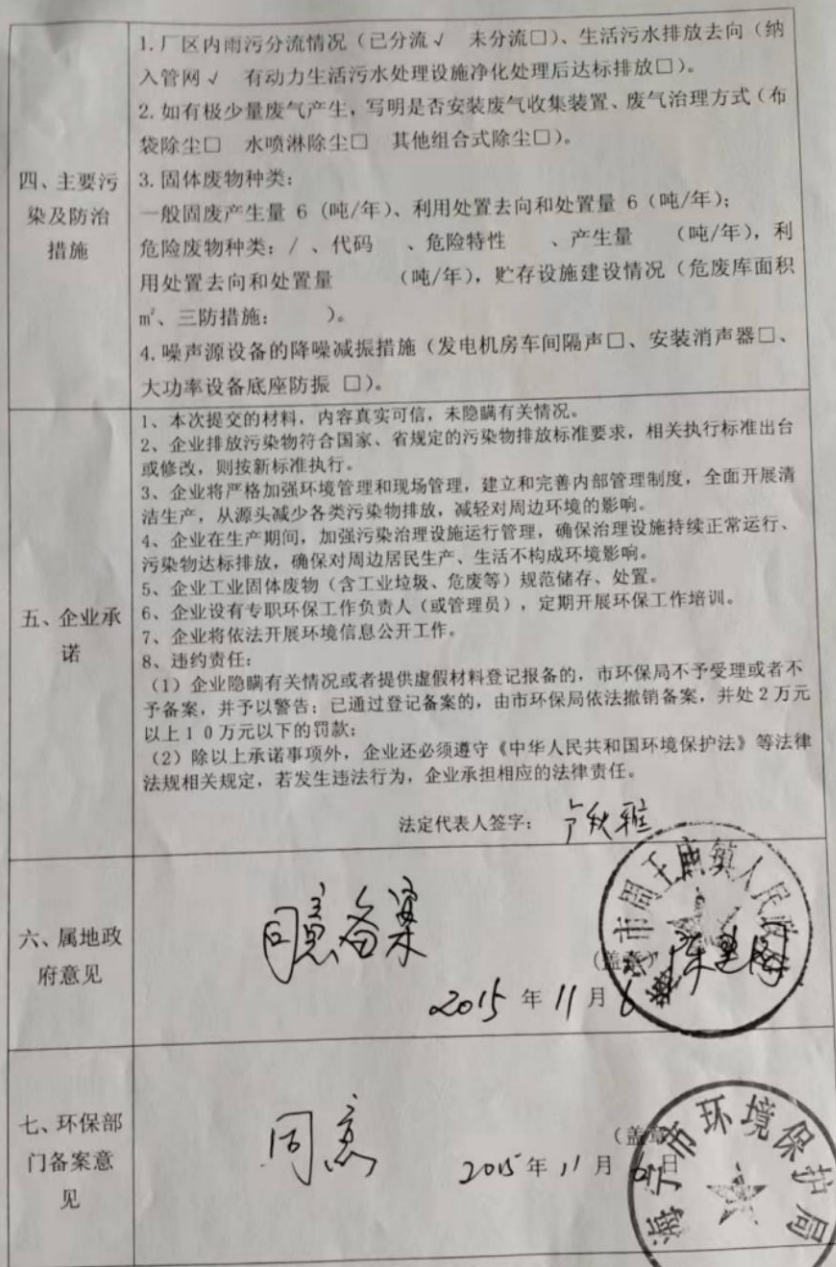 1.厂区内雨污分流情况（已分流√ 未分流□）、生活污水排放去向（纳
入管网√ 有动力生活污水处理设施净化处理后达标排放□）。
2.如有极少量废气产生，写明是否安装废气收集装置、废气治理方式（布
袋除尘□ 水喷淋除尘□ 其他组合式除尘□）。
四、主要污
染及防治
措施
3.固体废物种类：
一般固废产生量 6（吨/年）、利用处置去向和处置量 6（吨/年）；
危险废物种类：/ 、代码 、危险特性 、产生量 （吨/年），利
用处置去向和处置量 （吨/年），贮存设施建设情况（危废库面积
㎡、三防措施： ）。
4.噪声源设备的降噪减振措施（发电机房车间隔声□、安装消声器□、
大功率设备底座防振 □）。
五、企业承
诺
1、本次提交的材料，内容真实可信，未隐瞒有关情况。
2、企业排放污染物符合国家、省规定的污染物排放标准要求，相关执行标准出台
或修改，则按新标准执行。
3、企业将严格加强环境管理和现场管理，建立和完善内部管理制度，全面开展清
洁生产，从源头减少各类污染物排放，减轻对周边环境的影响。
4、企业在生产期间，加强污染治理设施运行管理，确保治理设施持续正常运行、
污染物达标排放，确保对周边居民生产、生活不构成环境影响。
5、企业工业固体废物（含工业垃圾、危废等）规范储存、处置。
6、企业设有专职环保工作负责人（或管理员），定期开展环保工作培训。
7、企业将依法开展环境信息公开工作。
8、违约责任：
（1）企业隐瞒有关情况或者提供虚假材料登记报备的，市环保局不予受理或者不
予备案，并予以警告；已通过登记备案的，由市环保局依法撤销备案，并处2万元
以上10万元以下的罚款；
（2）除以上承诺事项外，企业还必须遵守《中华人民共和国环境保护法》等法律
法规相关规定，若发生违法行为，企业承担相应的法律责任。
法定代表人签字：
六、属地政
府意见
同意备案
（盖章）
2015年11月6
市周王庙镇人民政
七、环保部
门备案意
见
同意
（盖章
2015年11月6日
海宁市环境保护局